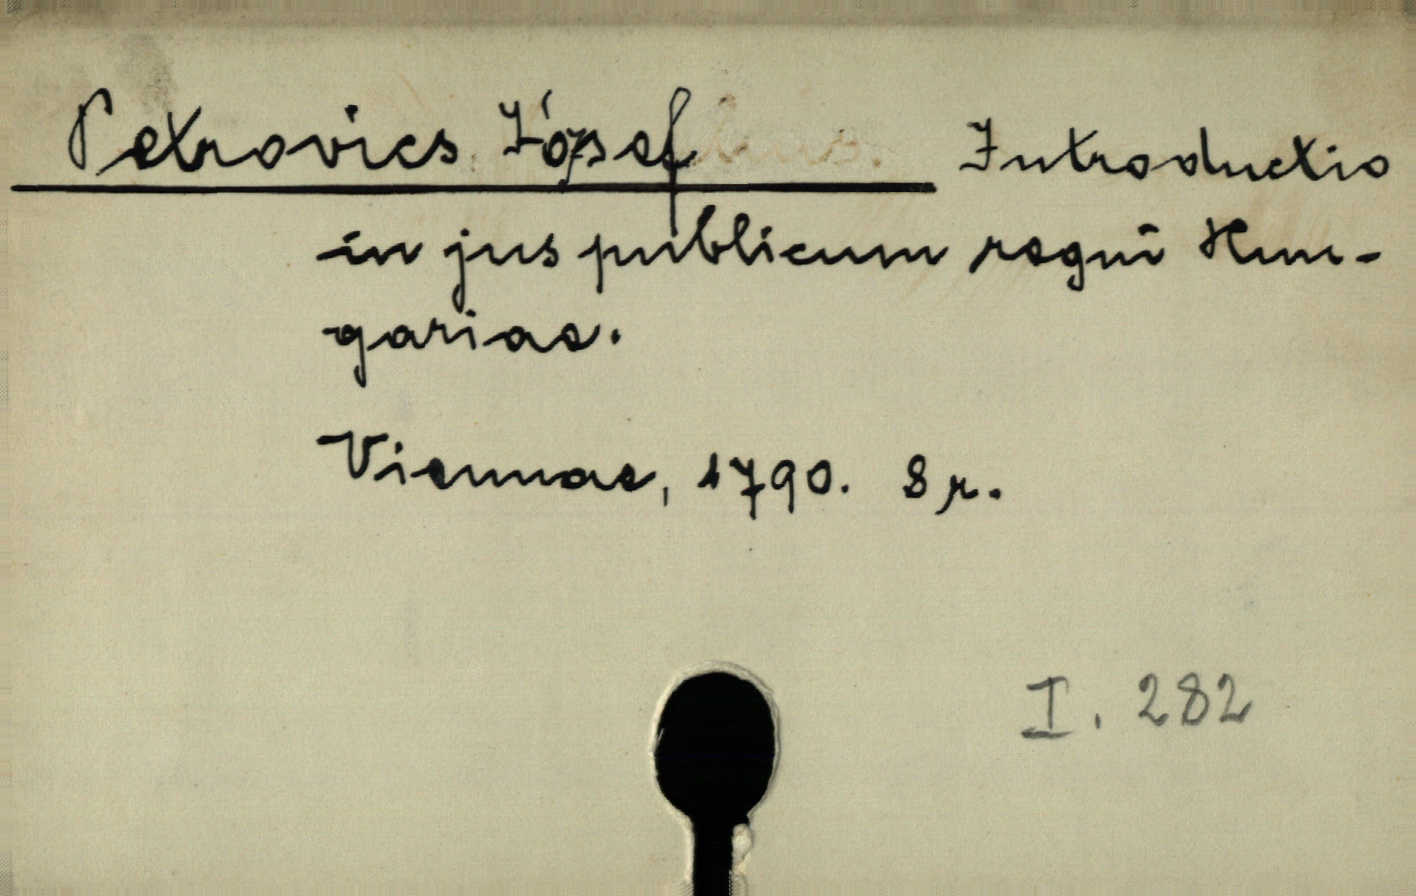 Petrovics József Introductio
in jus publicum regni Hun-
gariae.
Viennae, 1790. 8r.
I. 282